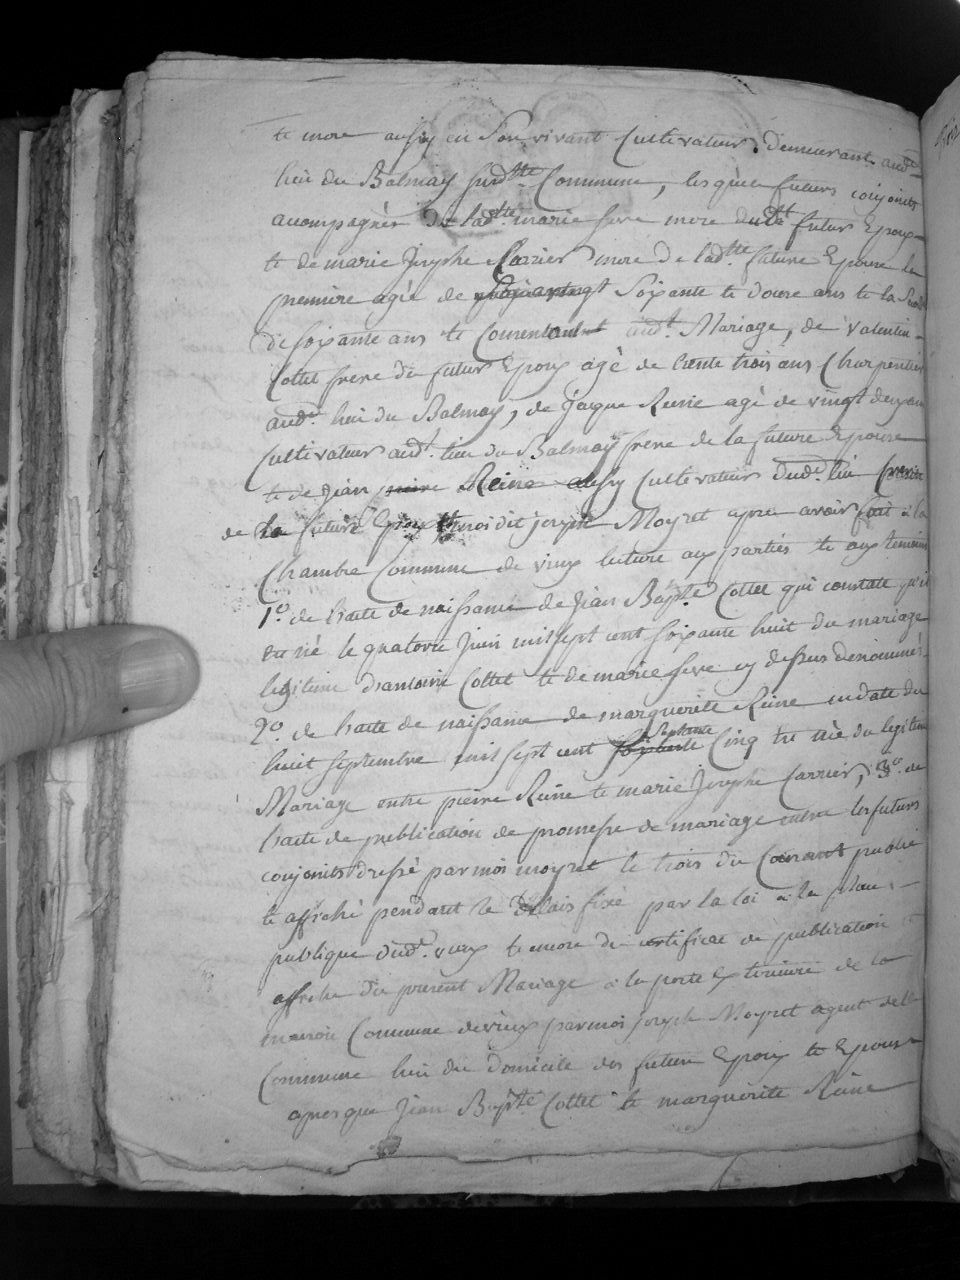 te more aussy en Son vivant Cultivateur demeurant aud.
lieu du Balmay sud.tte Commune, lesquels futurs conjoints
acompagnés de lad.tte marie serre mere dudt futur Epoux
te de marie Josephe Carrier mere de lad.tte future Epouse la
premiere agée de soixante te douse ans te la
de soixante ans te aud.t Mariage, de valentin
Cottet frere du futur Epoux agé de trente trois ans Charpentier
aud. lieu du Balmay, de Jaque Reine agé de vingt deux ans
Cultivateur aud.t lieu du Balmay frere de la future Epouse
te de Jean Reine aussy Cultivateur dud. lieu
de la future Epouse moi dit joseph Moyret apres avoir fait à la
Chambre Commune de vieux lecture aux parties te aux temoins
1.° de lacte de naissance de Jean Bapte Cottet qui constate qu'il
est né le quatorse Juin mil sept cent soixante huit du mariage
legitime d'antoine Cottet te de marie serre cy dessus denommés
2.° de lacte de naissance de marguerite Reine en date du
huit septembre mil sept cent soixante septante Cinq née du legitime
Mariage entre pierre Reine te marie Josephe Carrier, 3.° de
lacte de publication de promesse de mariage entre les futurs
conjoints dressé par moi moyret le trois du Courant publié
te affiché pendant le delais fixé par la loi à la place
publique dud. vieux te encore de certificat de publication
affiche du present Mariage à la porte exterieure de la
maison Commune de vieux par moi joseph Moyret agent de la
Commune lieu du domicile des futurs Epoux te Epouse
apres que Jean Bapte Cottet te marguerite Reine